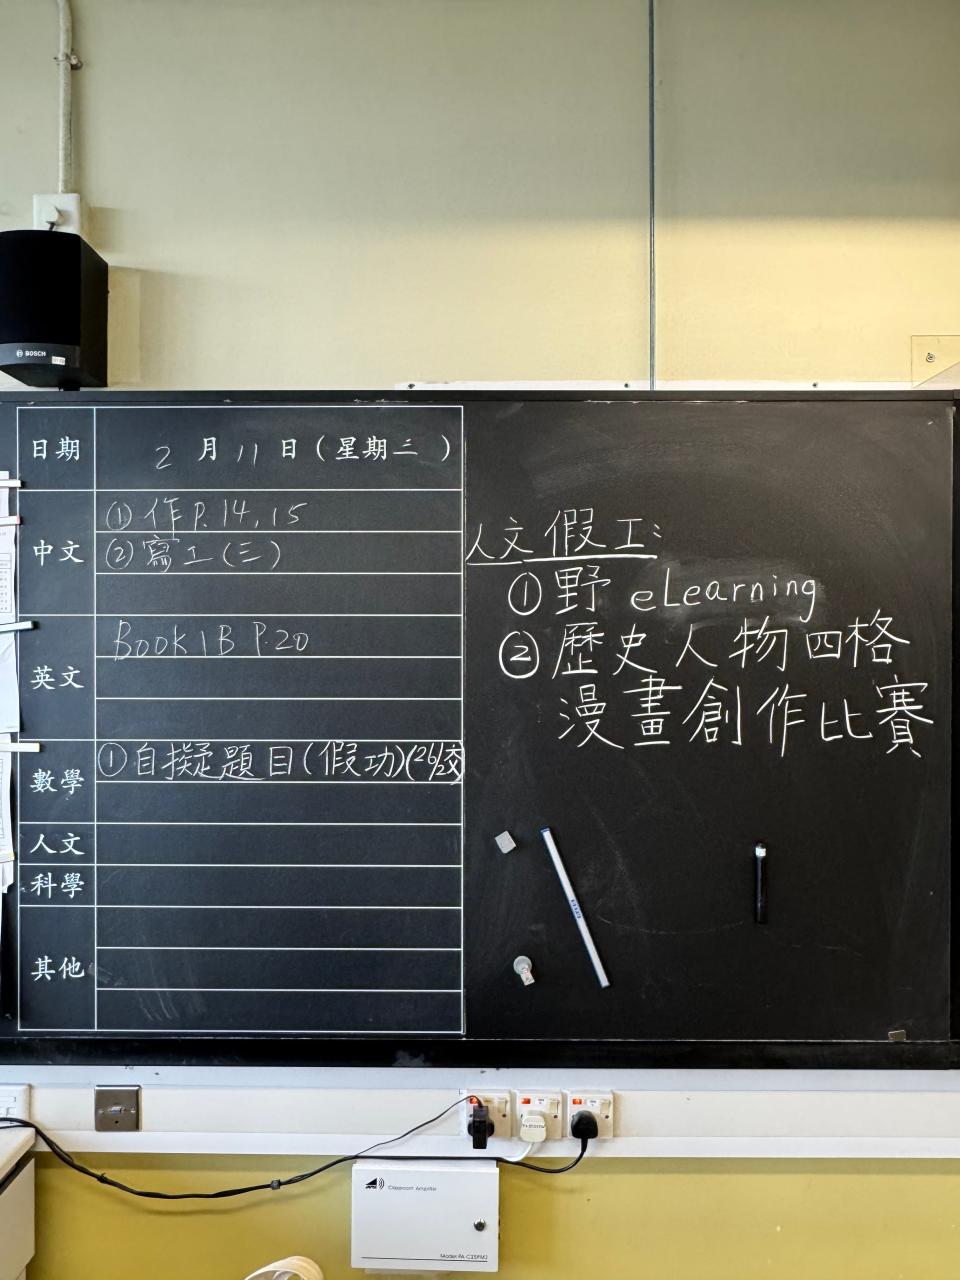 BOSCH
日期 2月11日(星期三)
中文 ①作P.14,15
②寫工(三)
英文 Book 1B P.20
數學 ①自擬題目(假功)(26/2交)
人文
科學
其他
人文假工:
①野 eLearning
②歷史人物四格
漫畫創作比賽
Classroom Amplifier
Model: PA-C25FM2